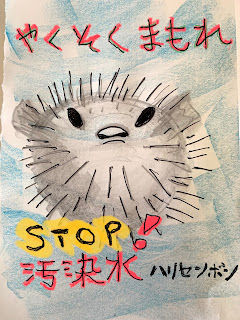 やくそくまもれ
STOP!
汚染水 ハリセンボン